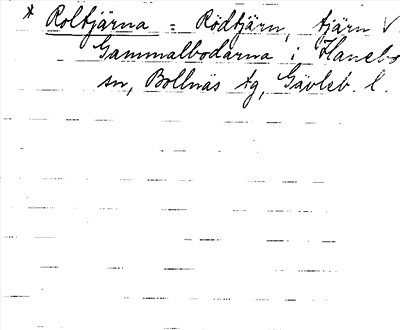 * Roltjärna = Rödtjärn, tjärn V
Gammalbodarna i Hanebo
sn, Bollnäs tg, Gävleb. l.